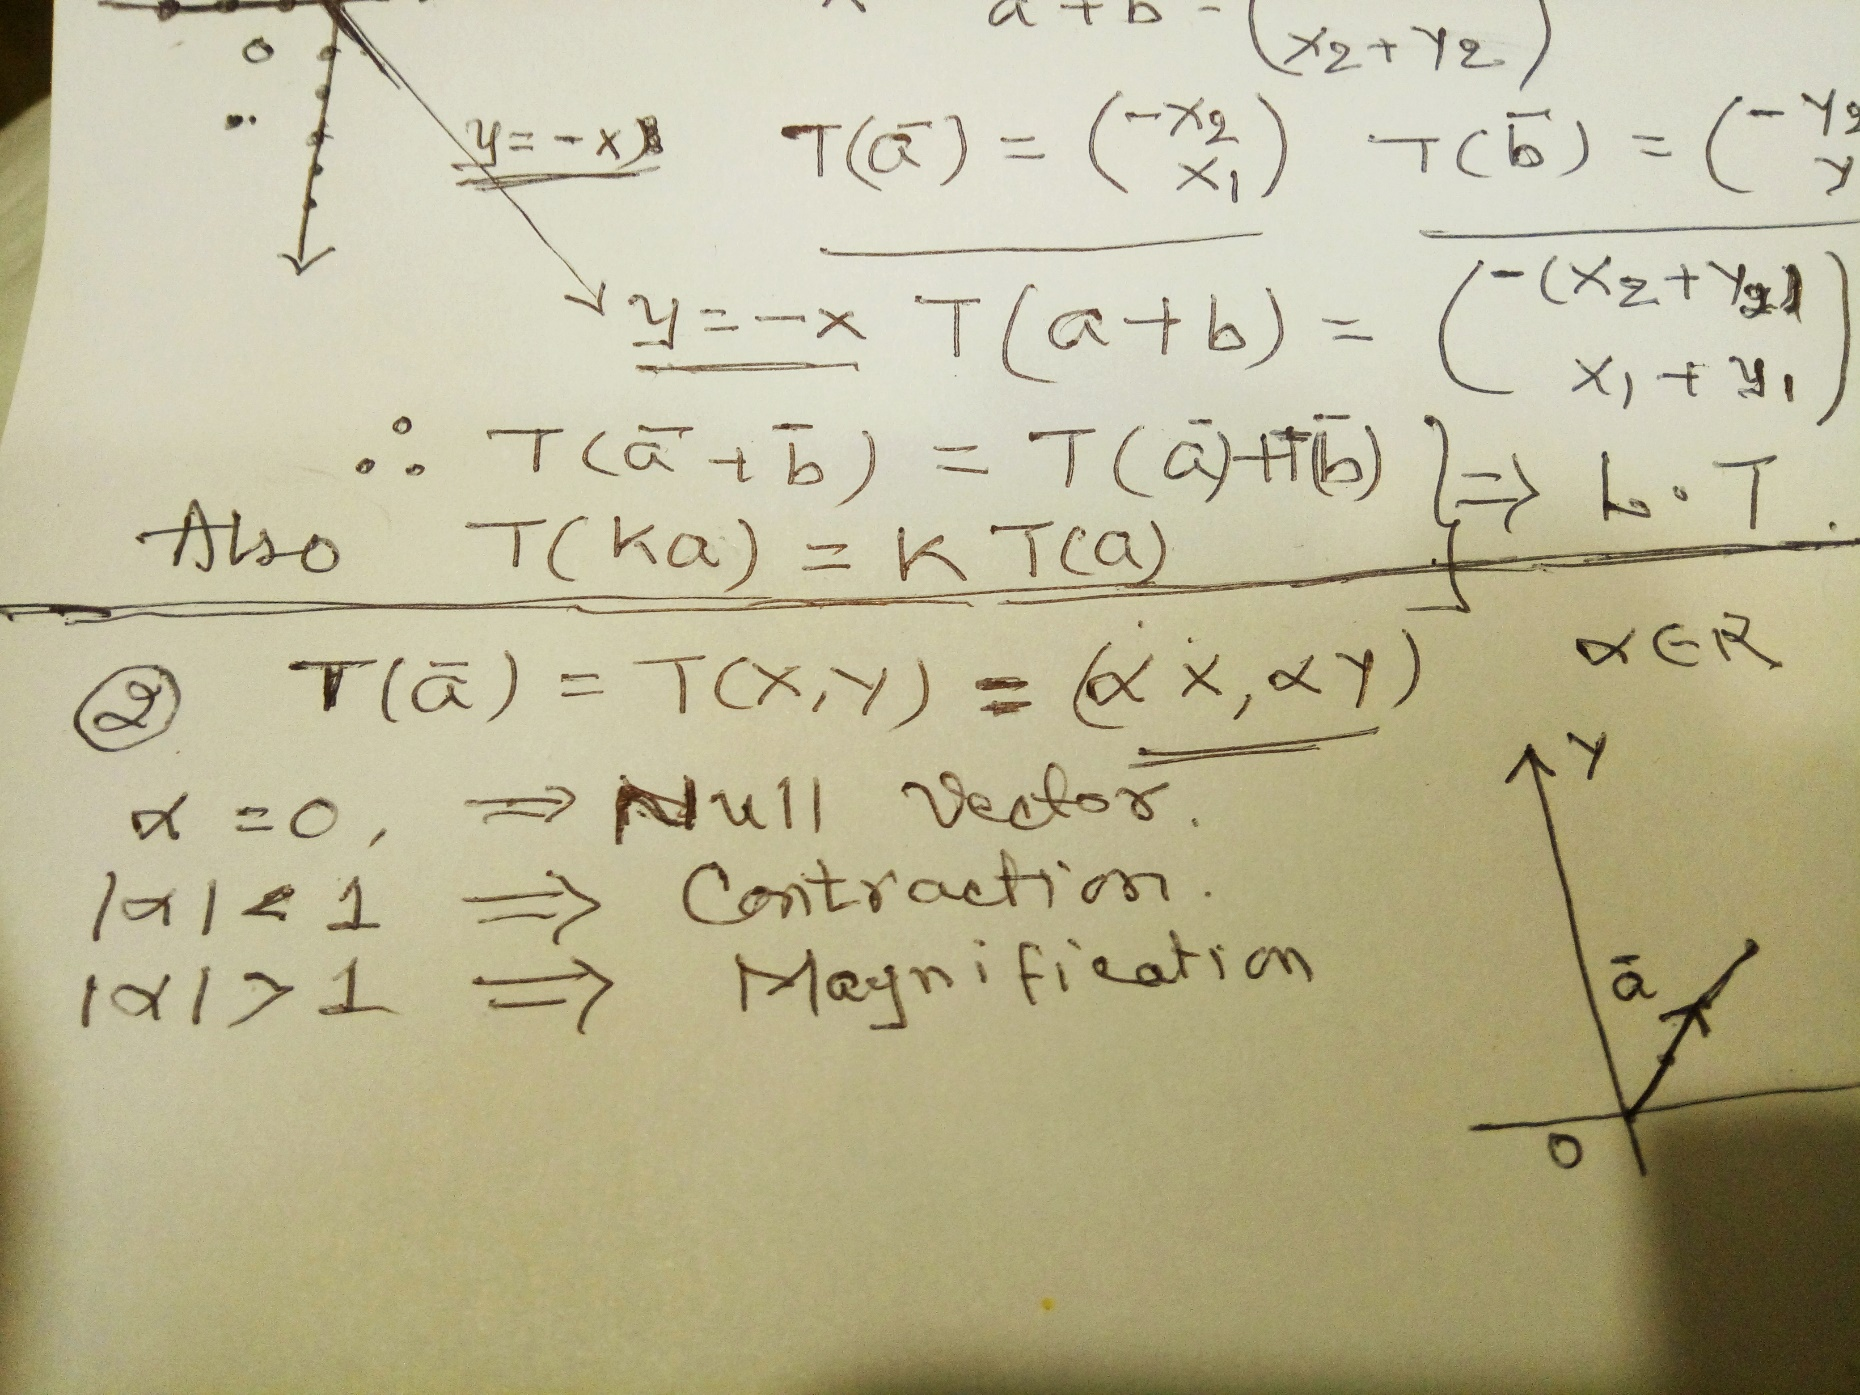 a + b = ( x2 + y2 )
0
y = -x
T(ā) = ( -x2 x1 ) T(b̄) = ( -y2 y
y = -x T(a+b) = ( -(x2+y2) x1 + y1 )
∴ T(ā + b̄) = T(ā)+T(b̄) } ⇒ L·T.
Also T(ka) = k T(a)
② T(ā) = T(x,y) = (αx, αy) α∈R
α = 0, ⇒ Null Vector.
|α| < 1 ⇒ Contraction.
|α| > 1 ⇒ Magnification
y
ā
0